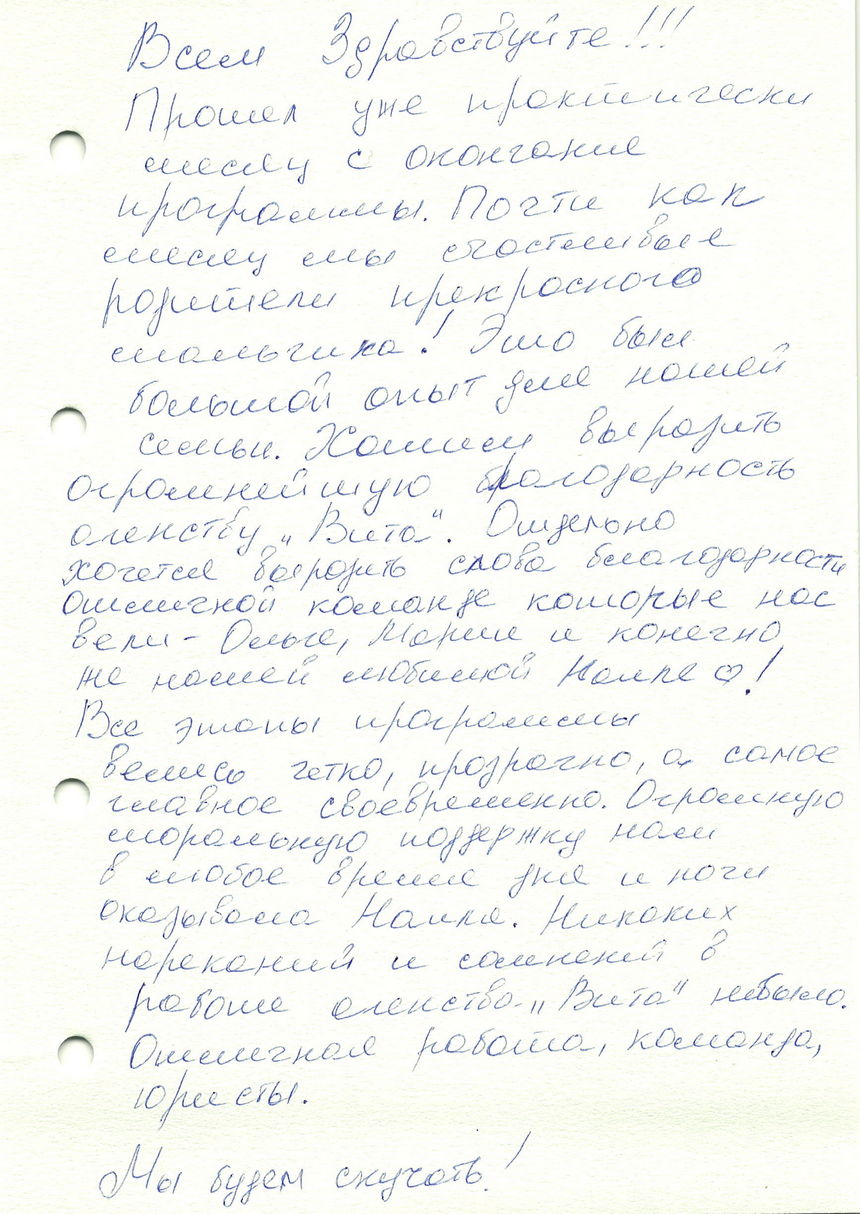 Всем Здравствуйте!!!
Прошел уже практически
месяц с окончание
программы. Почти как
месяц мы счастливые
родители прекрасного
мальчика! Это был
большой опыт для нашей
семьи. Хотим выразить
огромнейшую благодарность
агенству „Вита“. Отдельно
хочется выразить слова благодарности
отличной команде которые нас
вели - Ольге, Марии и конечно
же нашей любимой Наиле ♡!
Все этапы программы
велись четко, прозрачно, а самое
главное своевременно. Огромную
моральную поддержку нам
в любое время дня и ночи
оказывала Наиля. Никаких
нареканий и сомнений в
работе агенства „Вита“ небыло.
Отличная работа, команда,
юристы.
Мы будем скучать!